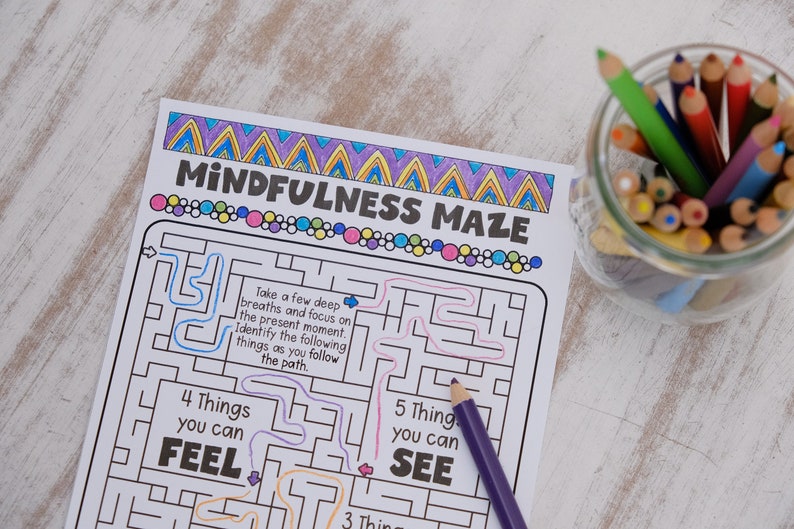 MiNDFULNESS MAZE
Take a few deep
breaths and focus on
the present moment.
Identify the following
things as you follow
the path.
4 Things
you can
FEEL
5 Things
you can
SEE
3 Things